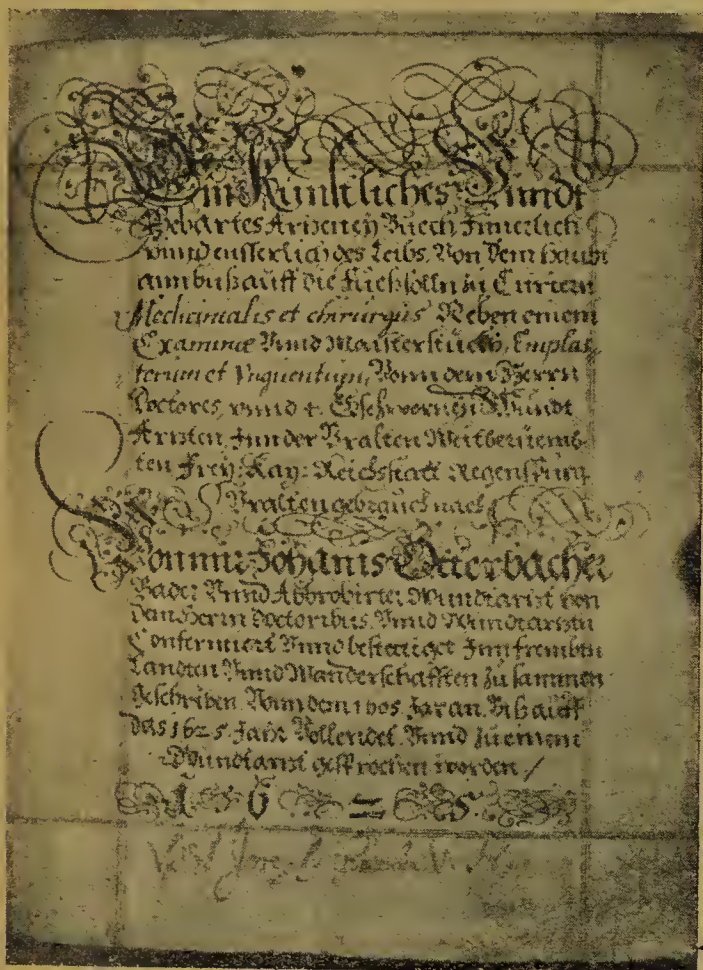 Ein Künstliches Vundt
Bebartes Artzeney Buech Innerlich
vnnd eusserlich des Leibs. Von dem haubt
ann biß auff die Fueßsolln zu Curiern
Medicinalis et chirurgus Neben einem
Examine Vnnd Maisterstückh, Emplas,
terum et Vnguentum, Vonn dem Herrn
Doctores, vnnd 4. Geschwornen Wundt
Artzten, Inn der Vralten Weitberüemb-
ten Frey: Kay: Reichsstatt Regenspurg
Vralten gebrauch nach
Vonn mir Johanis Otterbacher
Bader Vnnd Abbrobirter Wundtartzt von
dem Herrn Doctoribus. Vnnd Wundtartztn
Confermiert Vnnd bestettiget Inn frembtn
Landten Vnnd Wanderschafften zu sammen
geschriben. Vonn dem 1605 Jar an. Biß auff
das 1625. Jahr Vollendet. Vnnd zu einem
Wundtartzt gesprochen worden /
1 6 = 25